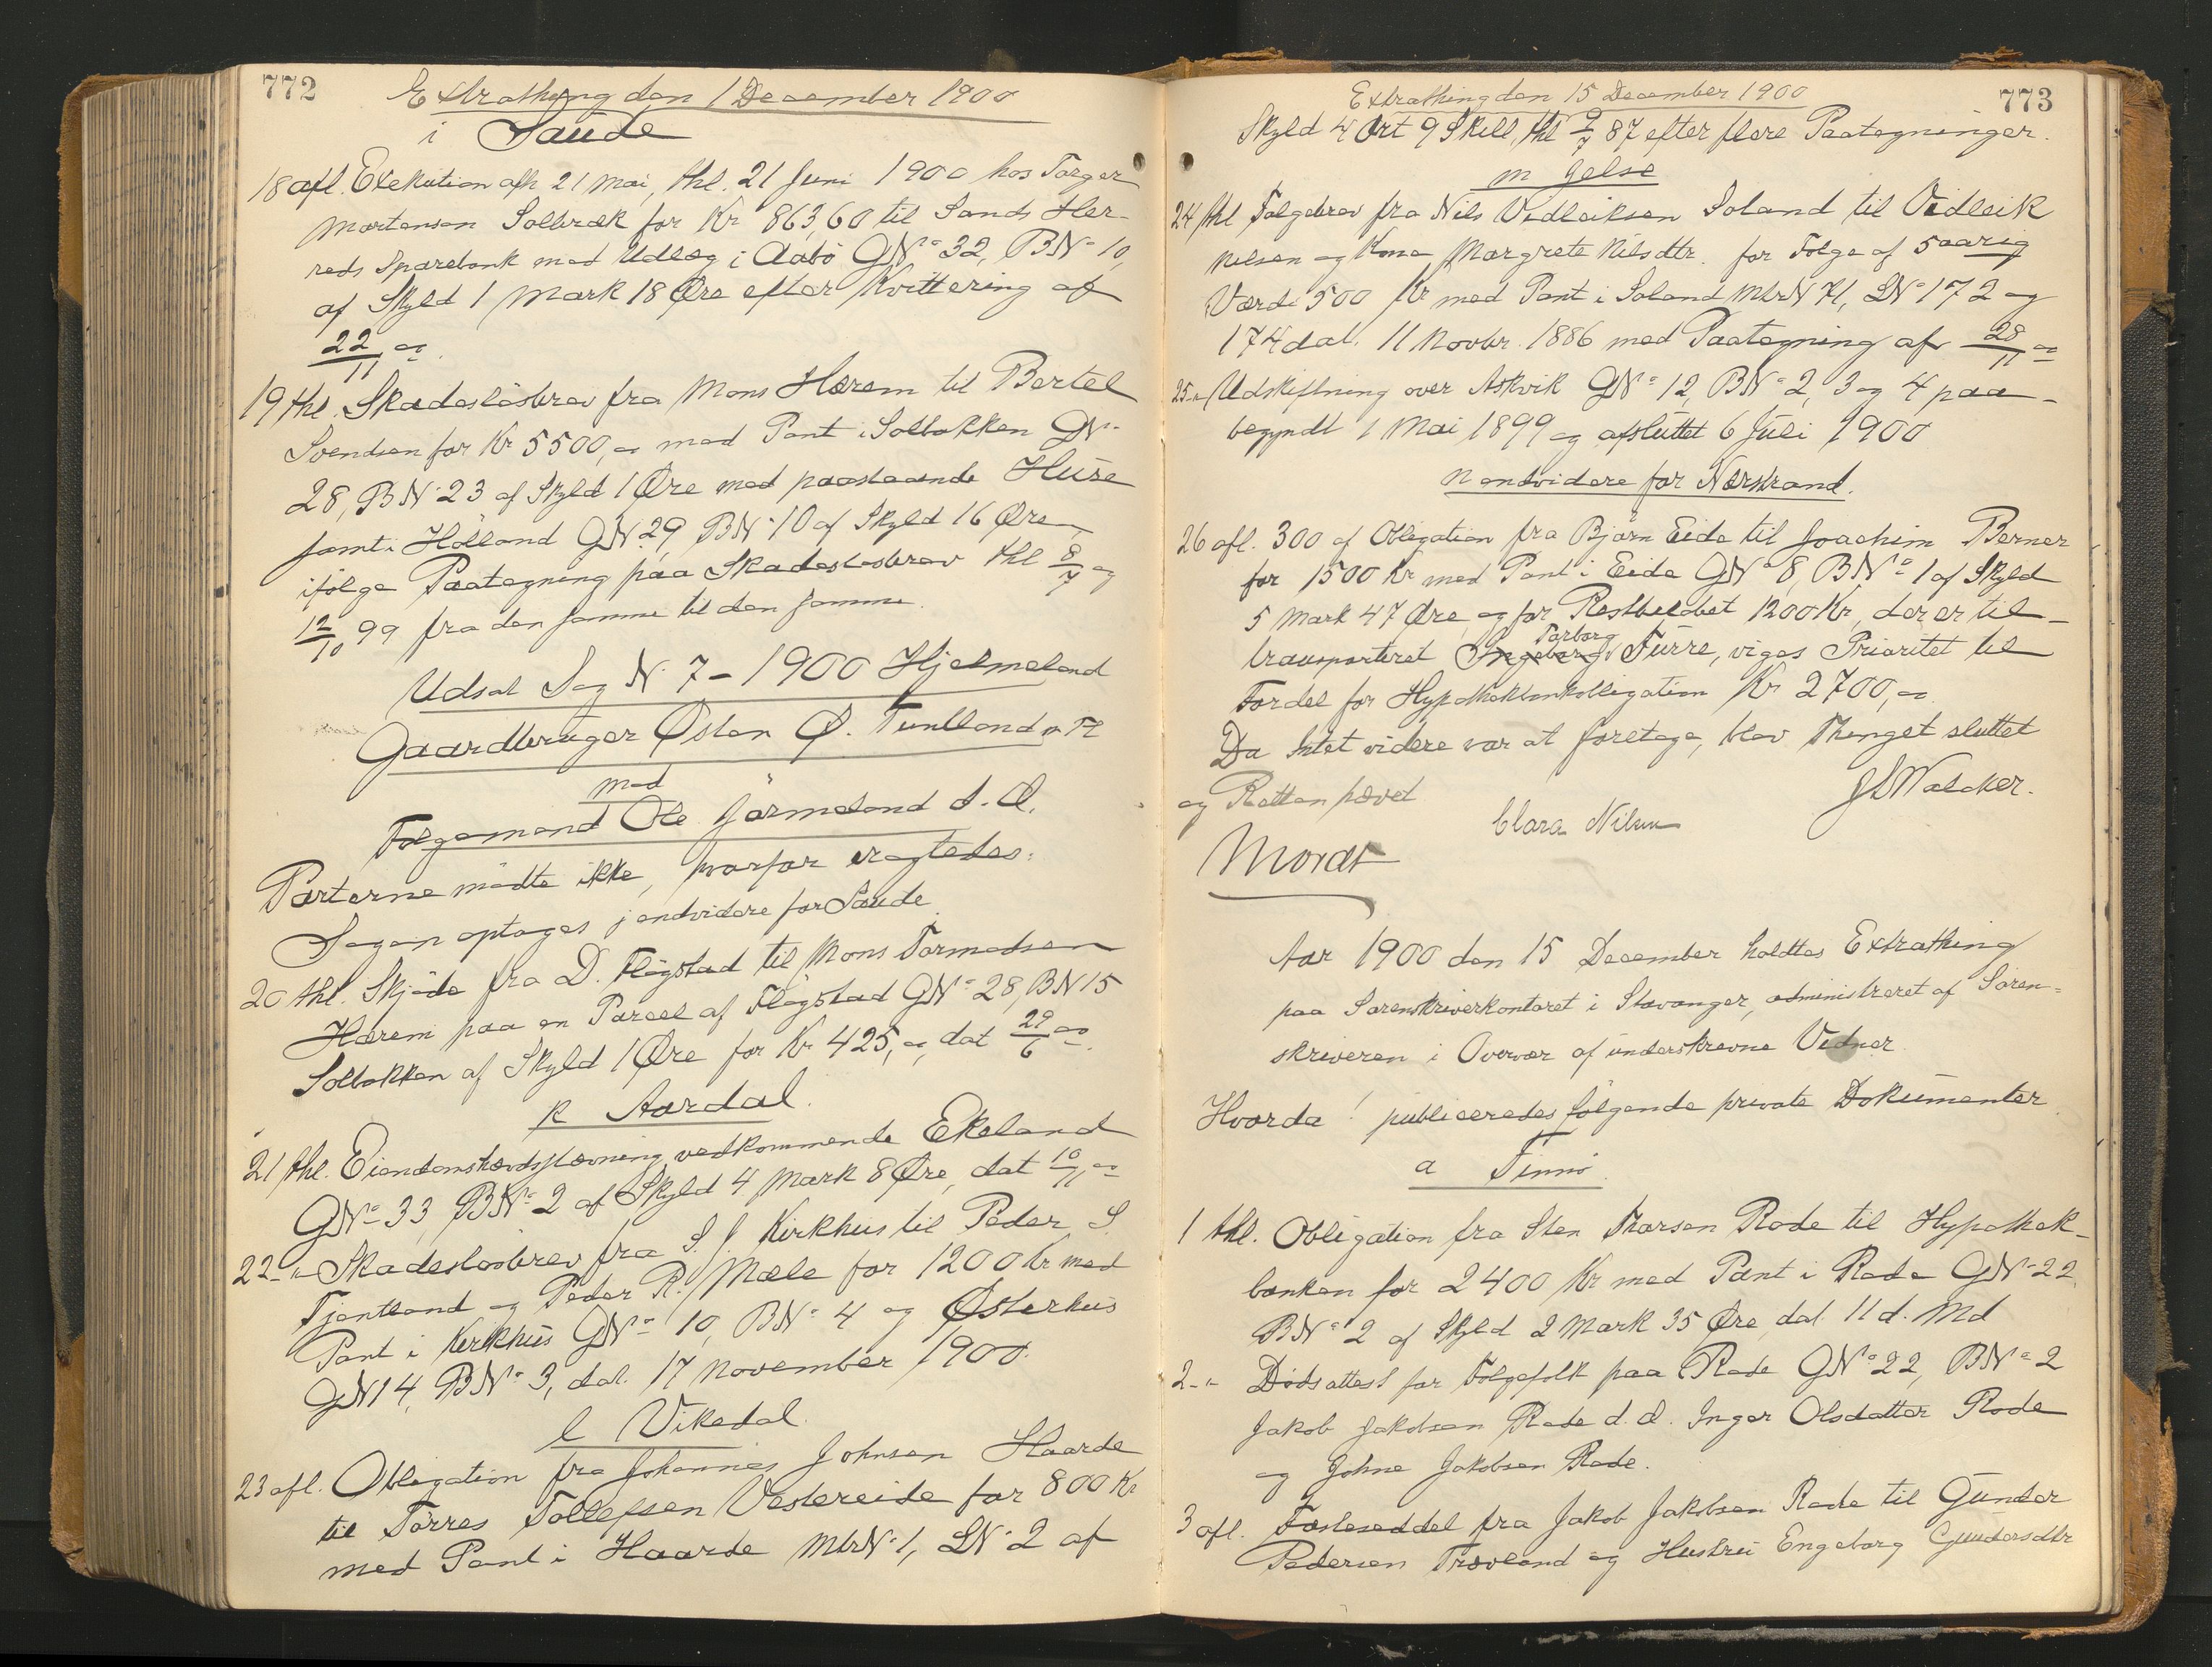 772
Extrathing den 1 December 1900
i Saude
18 afl. Exekution afh 21 Mai, thl. 21 Juni 1900 hos Torger
Mortensen Solbræk for Kr 863,60 til Sands Her-
reds Sparebank med Udlæg i Aabö GNo 32, BNo 10,
af Skyld 1 Mark 18 Øre efter Kvittering af
22/11 00.
19 thl. Skadeslösbrev fra Mons Hærem til Bertel
Svendsen for Kr 5500,00 med Pant i Solbakken GN.
28, BN. 23 af Skyld 1 Øre med paastaaende Huse
samt i Hölland GN. 29, BN. 10 af Skyld 16 Øre
ifölge Paategning paa Skadeslösbrev thl 8/7 og
12/10 99 fra den samme til den samme.
Udsat Sag N. 7-1900 Hjelmeland
Gaardbruger Østen Ø. Tuntland
mod
Folgemand Ole Jörmeland d. Æ.
Parterne mödte ikke, hvorfor eragtedes:
Sagen optages j endvidere for Saude
20 thl. Skjöde fra D. Flögstad til Mons Tormodsen
Hærem paa en Parcel af Flögstad GNo 28, BN 15
Solbakken af Skyld 1 Øre for Kr 425,00, dat 29/6 00.
k Aardal.
21 thl. Eiendomshævdsstævning vedkommende Ekeland
GNo 33, BNo 2 af Skyld 4 Mark 8 Øre, dat 10/11 00
22 -"- Skadeslösbrev fra S. J. Kirkhus til Peder S.
Tjentland og Peder R. Mæle for 1200 Kr med
Pant i Kirkhus GNo 10, BNo 4 og Østerhus
GN 14, BNo 3, dat. 17 November 1900.
l Vikedal.
23 afl. Obligation fra Johannes Johnsen Haarde
til Törres Tollefsen Vestereide for 800 Kr
med Pant i Haarde MtrN. 1, LN. 2 af
773
Extrathing den 15 December 1900
Skyld 4 Ort 9 Skill, thl 9/7 87 efter flere Paategninger.
m Jelse
24 thl Folgebrev fra Nils Vedleiksen Soland til Vidleik
Nilsen og Kone Margrete Nilsdtr. for Folge af 5 aarig
Værdi 500 Kr med Pant i Soland MtrN 71, LNo 172 og
174 dat. 11 Novbr. 1886 med Paategning af 28/11 00
25 -"- Udskiftning over Askvik GNo 12, BNo 2, 3 og 4 paa-
begyndt 1 Mai 1899 og afsluttet 6 Juli 1900
n endvidere for Nærstrand.
26 afl. 300 af Obligation fra Björn Eide til Joachim Berner
for 1500 Kr med Pant i Eide GNo 8, BNo 1 af Skyld
5 Mark 47 Øre, og for Restbelöbet 1200 Kr, der er til-
transporteret Ingeborg Torborg Furre, viges Prioritet til
Fordel for Hypothekbankobligation Kr 2700,00
Da Intet videre var at foretage, blev Thinget sluttet
og Retten hævet
Clara Nilsen
Mordt
Aar 1900 den 15 December holdtes Extrathing
paa Sorenskriverkontoret i Stavanger, administreret af Soren-
skriveren i Overvær af underskrevne Vidner.
Hvorda! publiceredes fölgende private Dokumenter
a Finnö
1 thl. Obligation fra Sten Thorsen Rode til Hypothek-
banken for 2400 Kr med Pant i Rode GNo 22
BNo 2 af Skyld 2 Mark 35 Øre, dat. 11 d. Md
2 -"- Dödsattest for Folgefolk paa Rode GNo 22, BNo 2
Jakob Jakobsen Rode d. Æ. Inger Olsdatter Rode
og Johne Jakobsen Rode.
3 afl. Fæsteseddel fra Jakob Jakobsen Rode til Gunder
Pedersen Trovland og Hustru Engeborg Gundersdtr